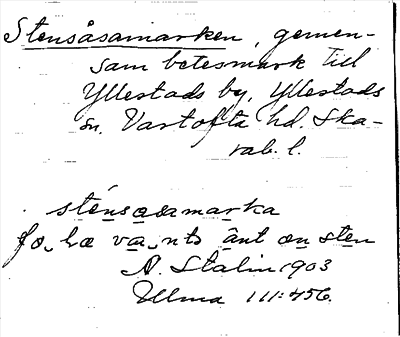 Stensåsamarken, gemen-
sam betesmark till
Yllestads by, Yllestads
sn. Vartofta hd. Ska-
rab. l.
sténsasamarka
ænt æn sten
A. Stalin 1903
Ulma 111:456.